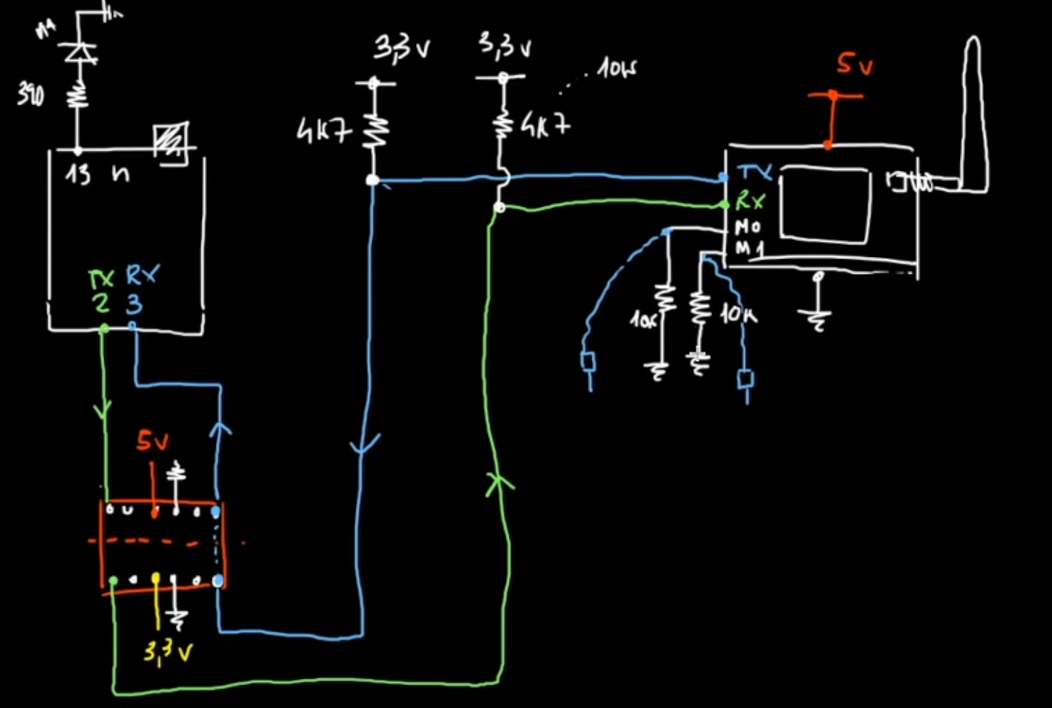 390
13 n
TX RX
2 3
5v
3,3 v
3,3 v
4K7
3,3 v
4K7
10K
5v
TX
RX
M0
M1
10K
10K